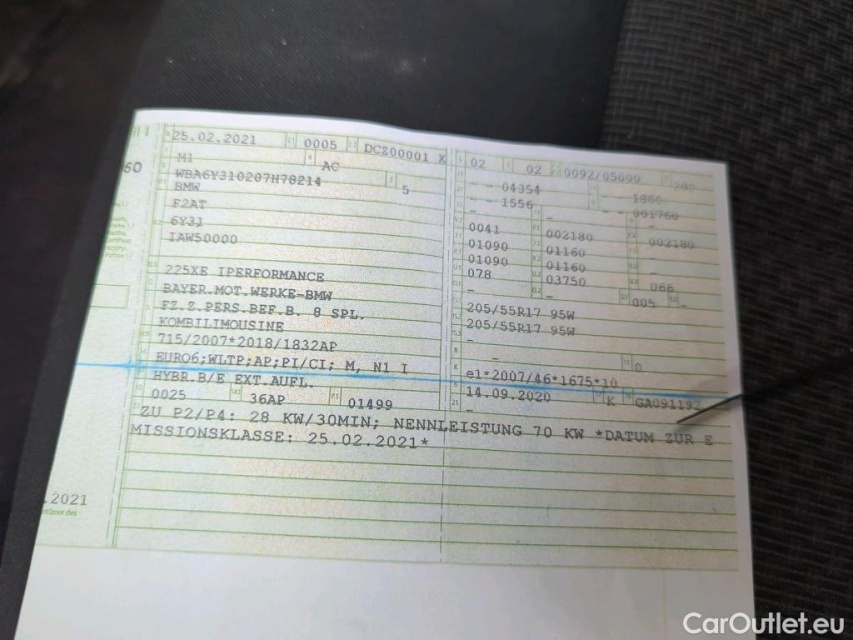 25.02.2021 0005 DCZ00001 X 02 02 0092/05000
M1 AC 04354
WBA6Y310207H78214 5 1556 001760
BMW
F2AT 0041 002180 002180
6Y31 01090 01160
IAW50000 01090 01160
078 03750 066
225XE IPERFORMANCE 005
BAYER.MOT.WERKE-BMW 205/55R17 95W
FZ.Z.PERS.BEF.B. 8 SPL. 205/55R17 95W
KOMBILIMOUSINE
715/2007*2018/1832AP
EURO6;WLTP;AP;PI/CI; M, N1 I e1*2007/46*1675*10
HYBR.B/E EXT.AUFL. 14.09.2020 K GA091192
0025 36AP 01499
ZU P2/P4: 28 KW/30MIN; NENNLEISTUNG 70 KW *DATUM ZUR E
MISSIONSKLASSE: 25.02.2021*
.2021
CarOutlet.eu